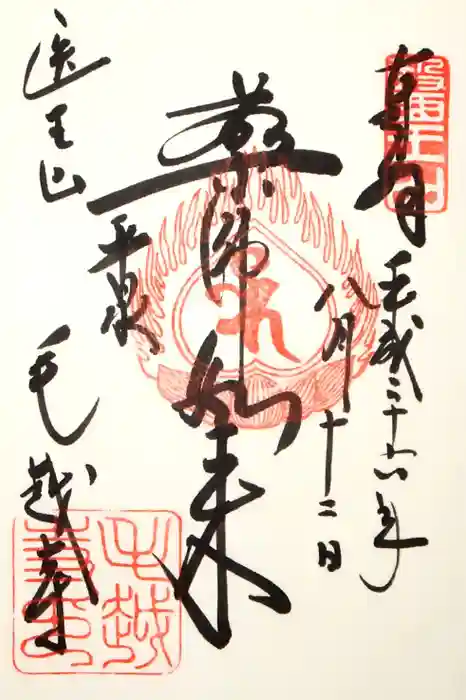 奉拝
平成二十六年
八月十二日
薬師如来
平泉
医王山
毛越寺
毛越